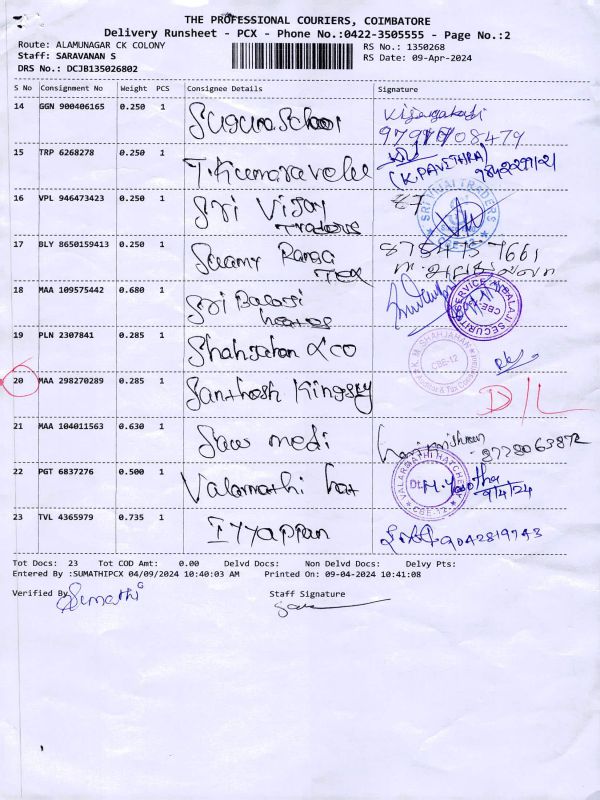 THE PROFESSIONAL COURIERS, COIMBATORE
Delivery Runsheet - PCX - Phone No.:0422-3505555 - Page No.:2
Route: ALAMUNAGAR CK COLONY
RS No.: 1350268
Staff: SARAVANAN S
RS Date: 09-Apr-2024
DRS No.: DCJB135026802
S No Consignment No Weight PCS Consignee Details Signature
14 GGN 900406165 0.250 1 Suguna School
15 TRP 6268278 0.250 1 T. Kumaravelu
(K. PAVITHRA)
16 VPL 946473423 0.250 1 Sri Vijay
Traders
SRI VIJAI TRADERS
CBE-12
17 BLY 8650159413 0.250 1 Swamy Ranga
Tex
18 MAA 109575442 0.680 1 Sri Balaji
BALAJI SECURITY SERVICE
19 PLN 2307841 0.285 1 Shahjahan & co
K. M. SHAHJAHAN
CBE-12
20 MAA 298270289 0.285 1 Santhosh Kingsly
D/L
21 MAA 104011563 0.630 1 Saw medi
22 PGT 6837276 0.500 1 Valarmathi hat
VALARMATHI HATCHERY
CBE-12
9/4/24
23 TVL 4365979 0.735 1 Iyyappan
9042819743
Tot Docs: 23 Tot COD Amt: 0.00 Delvd Docs: Non Delvd Docs: Delvy Pts:
Entered By :SUMATHIPCX 04/09/2024 10:40:03 AM Printed On: 09-04-2024 10:41:08
Verified By Sumathi
Staff Signature